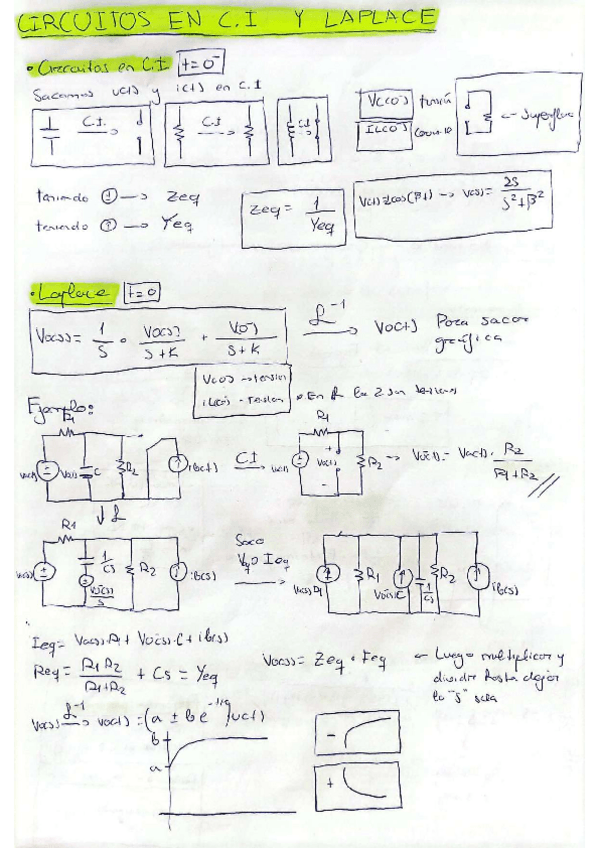 CIRCUITOS EN C.I Y LAPLACE
• Circuitos en C.I t=0⁻
Sacamos v(t) y i(t) en C.I
C.I.
C.I
C.I
Vc(0⁻) tensión
IL(0⁻)
← Superflua
teniendo → Zeq
teniendo → Yeq
Zeq = 1/Yeq
V(t)=cos(βt) → V(s) = 2s/s²+β²
• Laplace t=0
Vo(s) = 1/s • Vo(s)/s+k + V(0⁻)/s+k
ℒ⁻¹ → Vo(t) Para sacar
gráfica
Vc(0) → tension
iL(0) → tension
• En ℒ las 2 son tensiones
Ejemplo:
R1
R1
Va(t) Vo(t) C R2 ib(t)
C.I →
Va(t) + Vo(t) - R2 → Vo(t) = Va(t) • R2/R1+R2
↓ ℒ
R1
Va(s) 1/Cs Vo(s)/s R2 ib(s)
Saco
Ieq
Va(s)R1 R1 Vo(s)C 1/Cs R2 ib(s)
Ieq = Va(s)•R1 + Vo(s)•C + ib(s)
Req = R1 R2/R1+R2 + Cs = Yeq
Vo(s) = Zeq • Feq
← Luego multiplicar y
dividir hasta dejar
la "s" sola
Vo(s) ℒ⁻¹ → Vo(t) = (a ± b e )u(t)
b
a
-
+